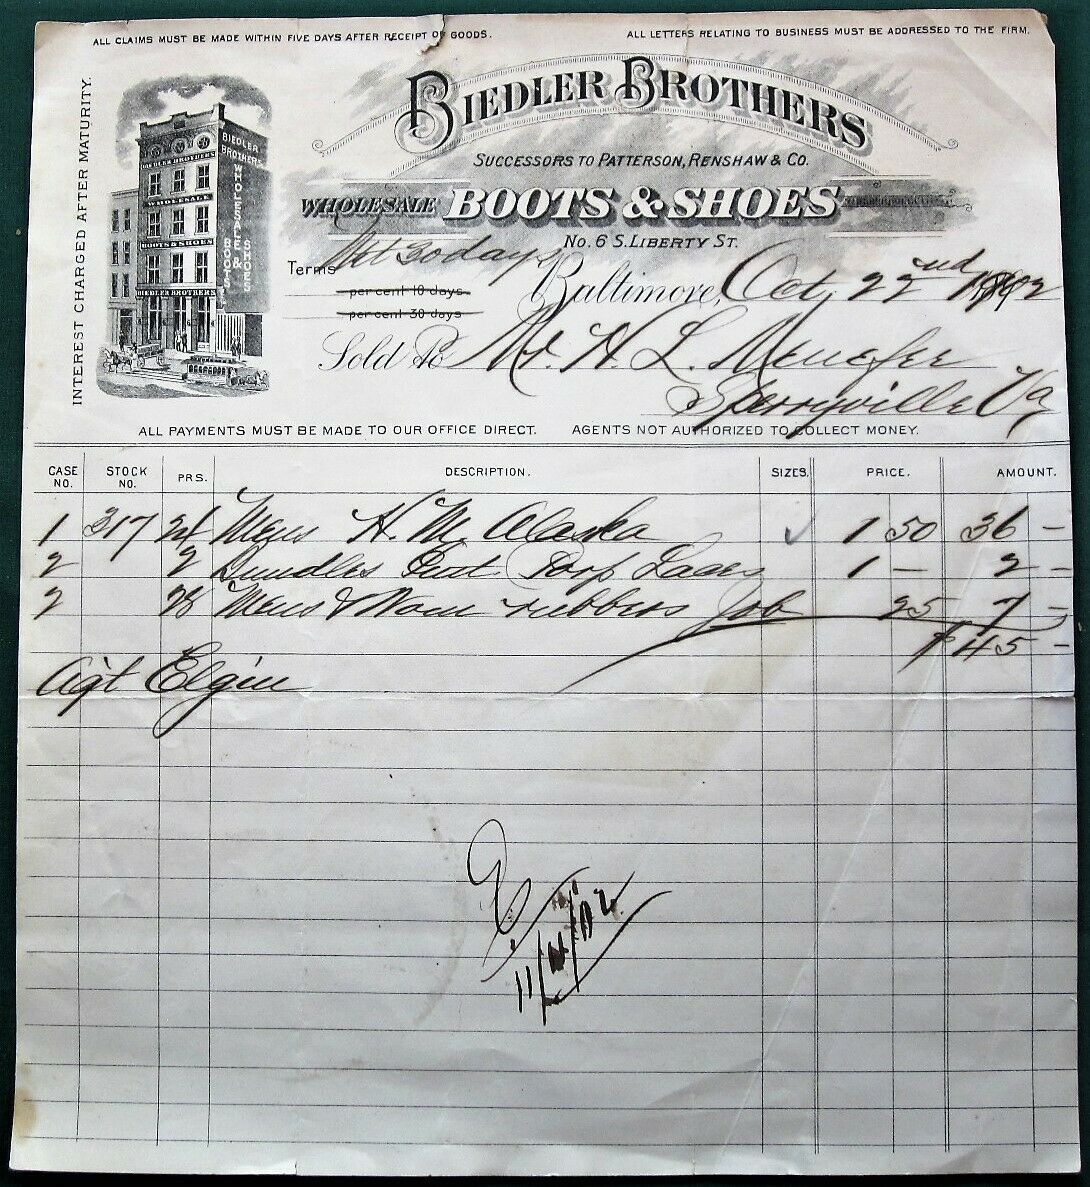 ALL CLAIMS MUST BE MADE WITHIN FIVE DAYS AFTER RECEIPT OF GOODS.
ALL LETTERS RELATING TO BUSINESS MUST BE ADDRESSED TO THE FIRM.
INTEREST CHARGED AFTER MATURITY.
BIEDLER BROTHERS
WHOLESALE
BOOTS & SHOES
BIEDLER BROTHERS
BIEDLER BROTHERS
WHOLESALE & BOOTS SHOES
BIEDLER BROTHERS
SUCCESSORS TO PATTERSON, RENSHAW & CO.
WHOLESALE BOOTS & SHOES
No. 6 S. LIBERTY ST.
Terms Net 30 days
per cent 10 days
per cent 30 days
Baltimore, Oct 22nd
Sold To Mr. H. L. Menefee
Sperryville Va
ALL PAYMENTS MUST BE MADE TO OUR OFFICE DIRECT. AGENTS NOT AUTHORIZED TO COLLECT MONEY.
CASE NO. STOCK NO. PRS. DESCRIPTION. SIZES. PRICE. AMOUNT.
1 317 24 Mens H. M. Alaska 1 50 36 -
2 2 Bundles Laces 1 - 2 -
2 28 Mens & Wom rubbers Job 25 7 -
$45 -
Agt Elgin